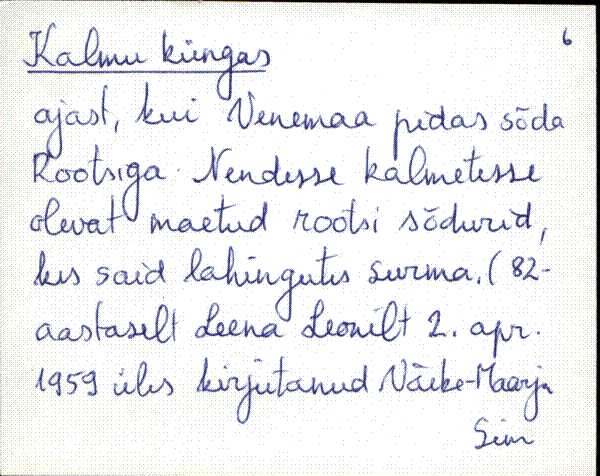 6
Kalmu küngas
ajast, kui Venemaa pidas sõda
Rootsiga. Nendesse kalmetesse
olevat maetud rootsi sõdurid,
kes said lahingutes surma. (82-
aastaselt Leena Leonilt 2. apr.
1959 üles kirjutanud Väike-Maarja